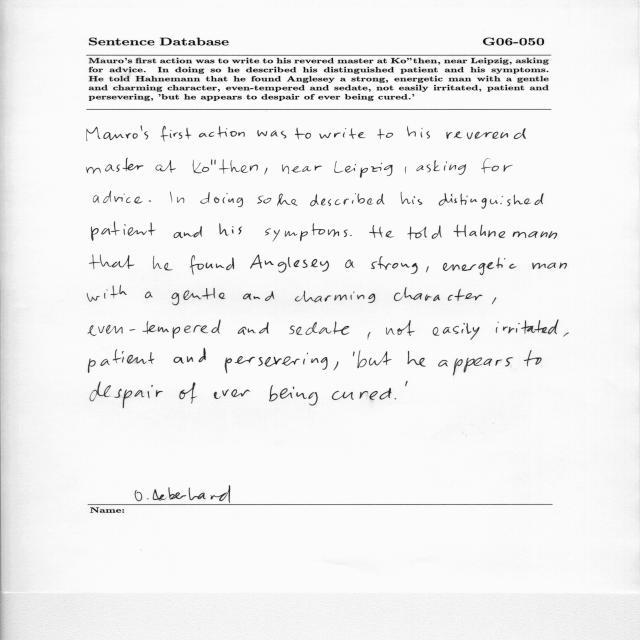 Sentence Database G06-050
Mauro's first action was to write to his revered master at Ko"then, near Leipzig, asking
for advice. In doing so he described his distinguished patient and his symptoms.
He told Hahnemann that he found Anglesey a strong, energetic man with a gentle
and charming character, even-tempered and sedate, not easily irritated, patient and
persevering, 'but he appears to despair of ever being cured.'
Mauro's first action was to write to his reverend
master at Ko"then, near Leipzig, asking for
advice. In doing so he described his distinguished
patient and his symptoms. He told Hahnemann
that he found Anglesey a strong, energetic man
with a gentle and charming character,
even-tempered and sedate, not easily irritated,
patient and persevering, 'but he appears to
despair of ever being cured.'
O.
Name: